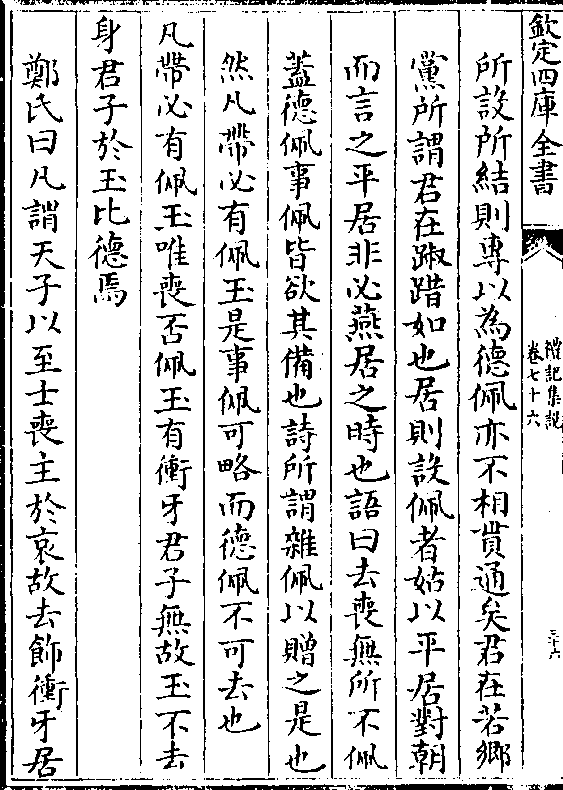 欽定四庫全書
禮記集說
卷七十六
三十六
所設所結則專以為德佩亦不相貫通矣君在若鄉
黨所謂君在踧踖如也居則設佩者姑以平居對朝
而言之平居非必燕居之時也語曰去喪無所不佩
蓋德佩事佩皆欲其備也詩所謂雜佩以贈之是也
然凡帶必有佩玉是事佩可略而德佩不可去也
凡帶必有佩玉唯喪否佩玉有衝牙君子無故玉不去
身君子於玉比德焉
鄭氏曰凡謂天子以至士喪主於哀故去飾衝牙居